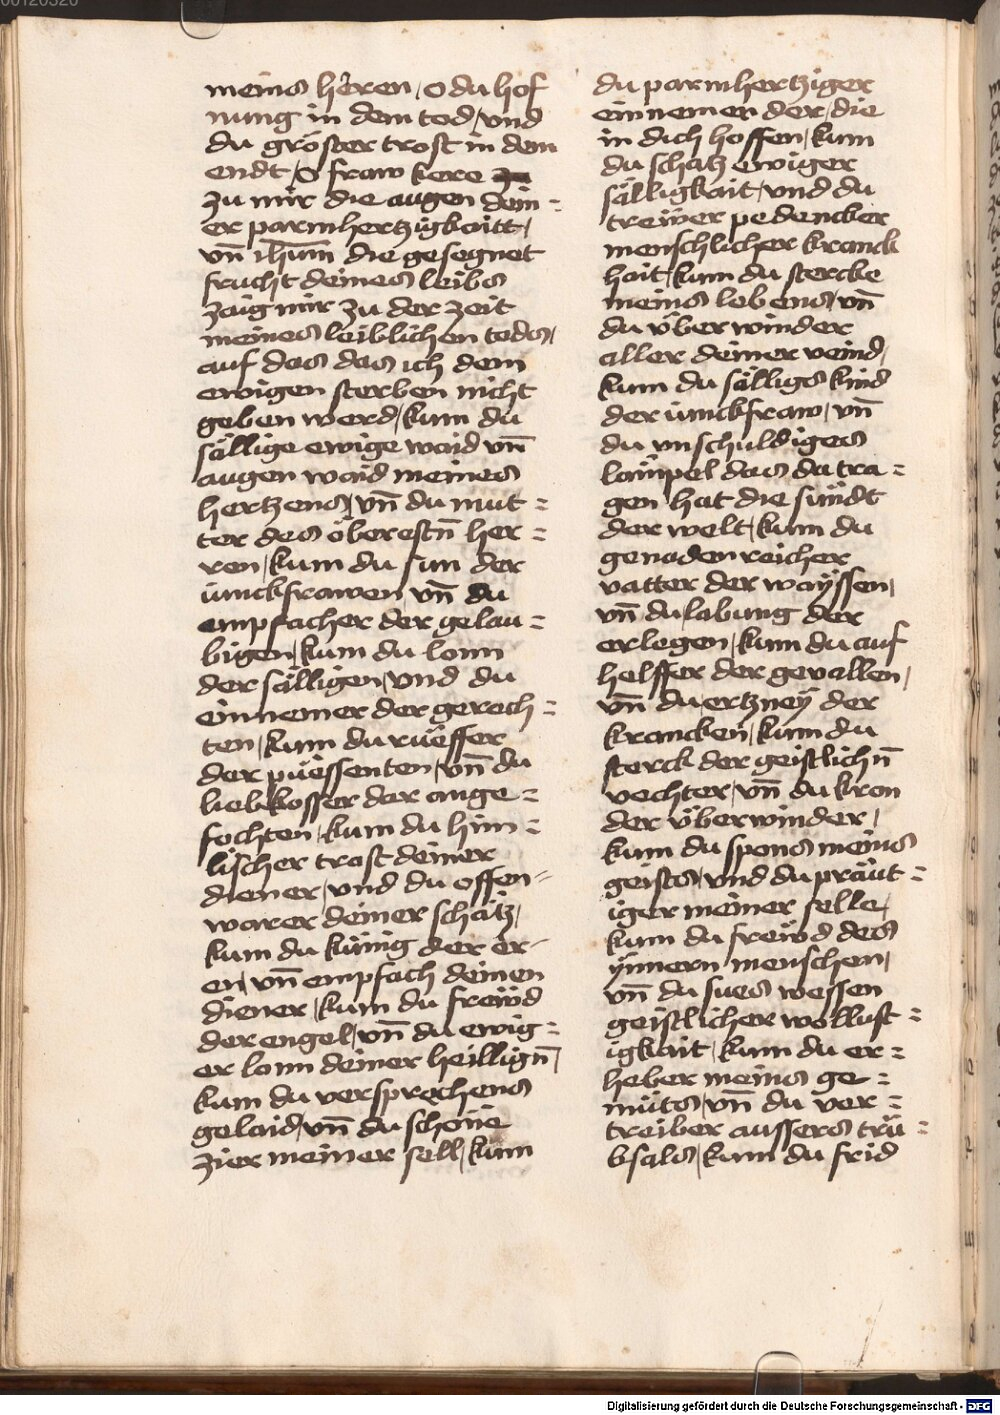 meins heren / o du hof
nung in dem tod / vnd
du gröster trost in dem
endt / O fraw kere
zu mir die augen dein =
er parmhertzigkaitt /
vn̄ ihm̄ die gesegnet
frucht deines leibs
zaig mir zu der zeit
meines leiblichen tods /
auf das das ich dem
ewigen sterben nicht
geben werd / kum du
sällige ewige waid vn̄
augen waid meines
hertzens / vn̄ du mut =
ter des öberestn̄ her =
ren / kum du sun der
iunckfrawen vn̄ du
empfacher der gelau =
bigen / kum du lonn
der sälligen / vnd du
einnemer der gerech =
ten / kum du rüeffer
der püessenten / vn̄ du
liebkosser der ange =
fochten / kum du him =
lischer trost deiner
diener / vnd du offen =
warer deiner schätz /
kum du künig der er =
en / vn̄ empfach deinen
diener / kum du freẅd
der engel / vn̄ du ewig =
er lonn deiner heillign̄ /
kum du versprechens
gelaid / vn̄ du schöne
zier meiner sell / kum
du parmhertziger
einnemer der / die
in dich hoffen / kum
du schatz ewiger
sälligkait / vnd du
treẅer pedencker
menschlicher kranck
hait / kum du stercke
meins lebens / vn̄
du überwinder
aller deiner veind /
kum du sälligs kind
der iunckfraw / vn̄
du vnschuldiges
lämpel das da tra =
gen hat die sündt
der welt / kum du
genadenreicher
vatter der waÿssen /
vn̄ du labung der
erlegen / kum du auf
helffer der gevallen /
vn̄ du ertzneÿ der
krancken / kum du
sterck der geistlichn̄
vechter / vn̄ du kron
der überwinder /
kum du spons meins
geists / vnd du präut =
iger meiner selle /
kum du freẅd des
ÿnnern menschen /
vn̄ du sues wessen
geistlicher wollust =
igkait / kum du er =
heber meins ge =
müts / vn̄ du ver =
treiber aussers trü =
bsals / kum du frid
Digitalisierung gefördert durch die Deutsche Forschungsgemeinschaft - DFG